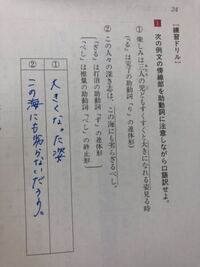 24
【練習ドリル】
1 次の例文の傍線部を助動詞に注意しながら口語訳せよ。
① 楽しみは二人の児どもすくすくと大きになれる姿見る時
（「る」は完了の助動詞「り」の連体形）
② この人々の深き志は、この海にも劣らざるべし。
（「ざる」は打消の助動詞「ず」の連体形
「べし」は推量の助動詞「べし」の終止形）
① 大きくなった姿
② この海にも劣らないだろう。